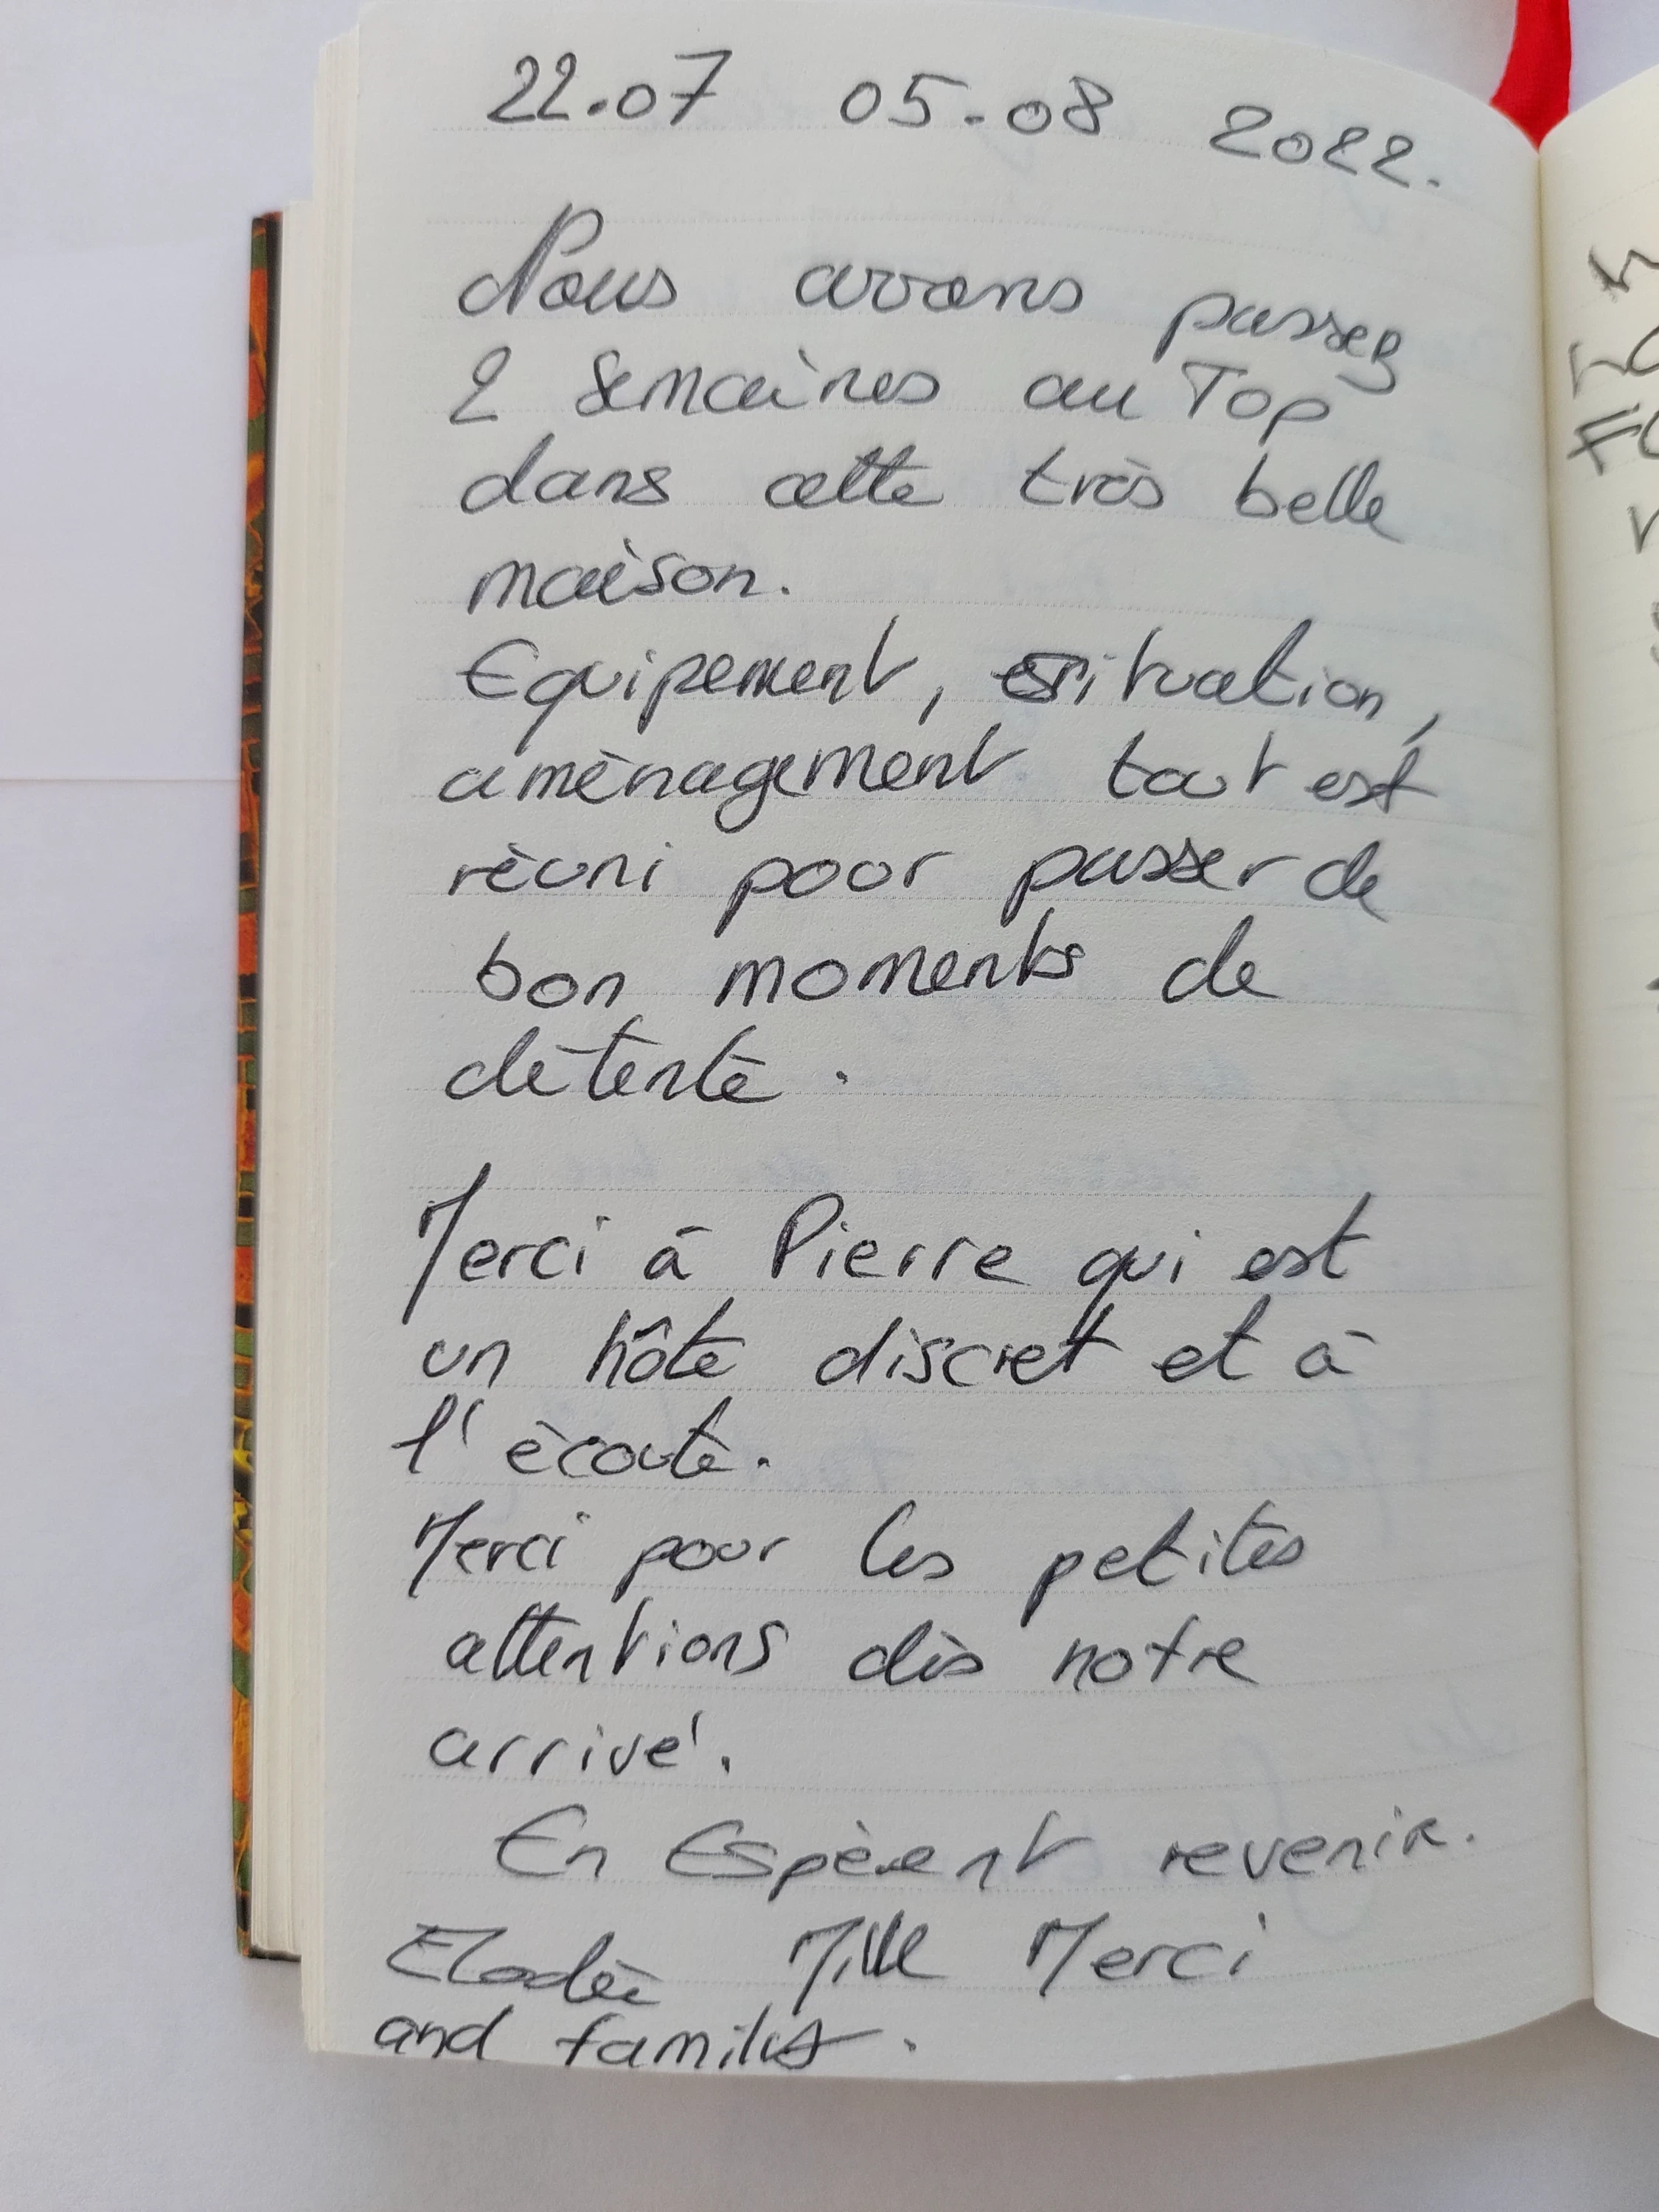 22.07 05-08 2022.
Nous avons passer
2 Semaines au Top
dans cette très belle
maison.
Equipement, situation,
aménagement tout est
réuni pour passer de
bon moments de
détente.
Merci à Pierre qui est
un hôte discret et à
l'écoute.
Merci pour les petites
attentions dès notre
arrivé.
En Espèrent revenir.
Elodie Mille Merci
and familly.